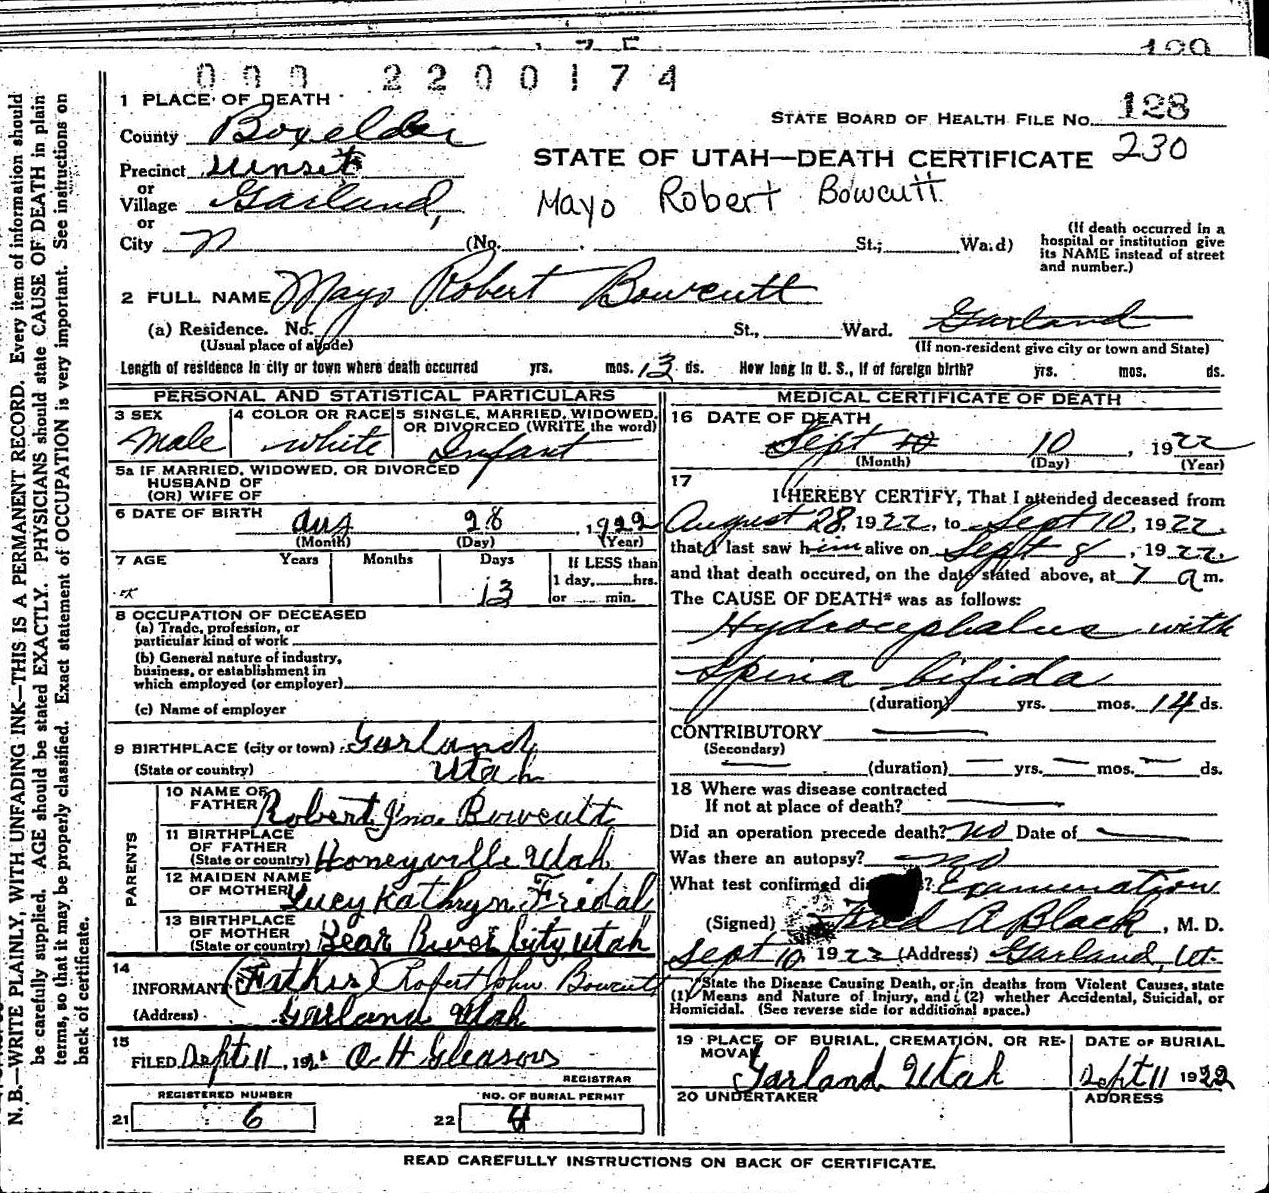 000 2200174
1 PLACE OF DEATH
STATE BOARD OF HEALTH FILE NO. 128
County Boxelder
230
STATE OF UTAH—DEATH CERTIFICATE
Precinct Sunset
or
Village Garland,
Mayo Robert Bowcutt
or
City (No. St.; Ward)
(If death occurred in a hospital or institution give its NAME instead of street and number.)
2 FULL NAME Mayo Robert Bowcutt
(a) Residence. No. St., Ward. Garland
(Usual place of abode) (If non-resident give city or town and State)
Length of residence in city or town where death occurred yrs. mos. 13 ds. How long in U. S., if of foreign birth? yrs. mos. ds.
PERSONAL AND STATISTICAL PARTICULARS
3 SEX Male
4 COLOR OR RACE White
5 SINGLE, MARRIED, WIDOWED, OR DIVORCED (WRITE the word) Infant
5a IF MARRIED, WIDOWED, OR DIVORCED
HUSBAND OF
(OR) WIFE OF
6 DATE OF BIRTH Aug 28, 1922
(Month) (Day) (Year)
7 AGE Years Months Days 13
If LESS than
1 day, hrs.
or min.
8 OCCUPATION OF DECEASED
(a) Trade, profession, or
particular kind of work
(b) General nature of industry,
business, or establishment in
which employed (or employer)
(c) Name of employer
9 BIRTHPLACE (city or town) Garland
(State or country) Utah
PARENTS
10 NAME OF
FATHER Robert Jno. Bowcutt
11 BIRTHPLACE
OF FATHER
(State or country) Honeyville Utah
12 MAIDEN NAME
OF MOTHER Lucy Kathryn Fridal
13 BIRTHPLACE
OF MOTHER
(State or country) Bear River City, Utah
14
INFORMANT (Father) Robert John Bowcutt
(Address) Garland Utah
15
FILED Sept 11, 192 O H Gleason
REGISTRAR
REGISTERED NUMBER
21 6
NO. OF BURIAL PERMIT
22 4
MEDICAL CERTIFICATE OF DEATH
16 DATE OF DEATH
Sept 10 10, 1922
(Month) (Day) (Year)
17
I HEREBY CERTIFY, That I attended deceased from
August 28, 1922, to Sept 10, 1922,
that I last saw him alive on Sept 8, 1922.
and that death occured, on the date stated above, at 7 a m.
The CAUSE OF DEATH* was as follows:
Hydrocephalus with
Spina bifida
(duration) yrs. mos. 14 ds.
CONTRIBUTORY
(Secondary)
(duration) yrs. mos. ds.
18 Where was disease contracted
If not at place of death?
Did an operation precede death? no Date of
Was there an autopsy? no
What test confirmed Examination
(Signed) Fred A Black, M. D.
Sept 10 1922 (Address) Garland, Ut.
*State the Disease Causing Death, or in deaths from Violent Causes, state
(1) Means and Nature of Injury, and (2) whether Accidental, Suicidal, or
Homicidal. (See reverse side for additional space.)
19 PLACE OF BURIAL, CREMATION, OR RE-
MOVAL Garland Utah
DATE OF BURIAL
Sept 11 1922
20 UNDERTAKER
ADDRESS
READ CAREFULLY INSTRUCTIONS ON BACK OF CERTIFICATE.
N. B.—WRITE PLAINLY, WITH UNFADING INK—THIS IS A PERMANENT RECORD. Every item of information should
be carefully supplied. AGE should be stated EXACTLY. PHYSICIANS should state CAUSE OF DEATH in plain
terms, so that it may be properly classified. Exact statement of OCCUPATION is very important. See instructions on
back of certificate.